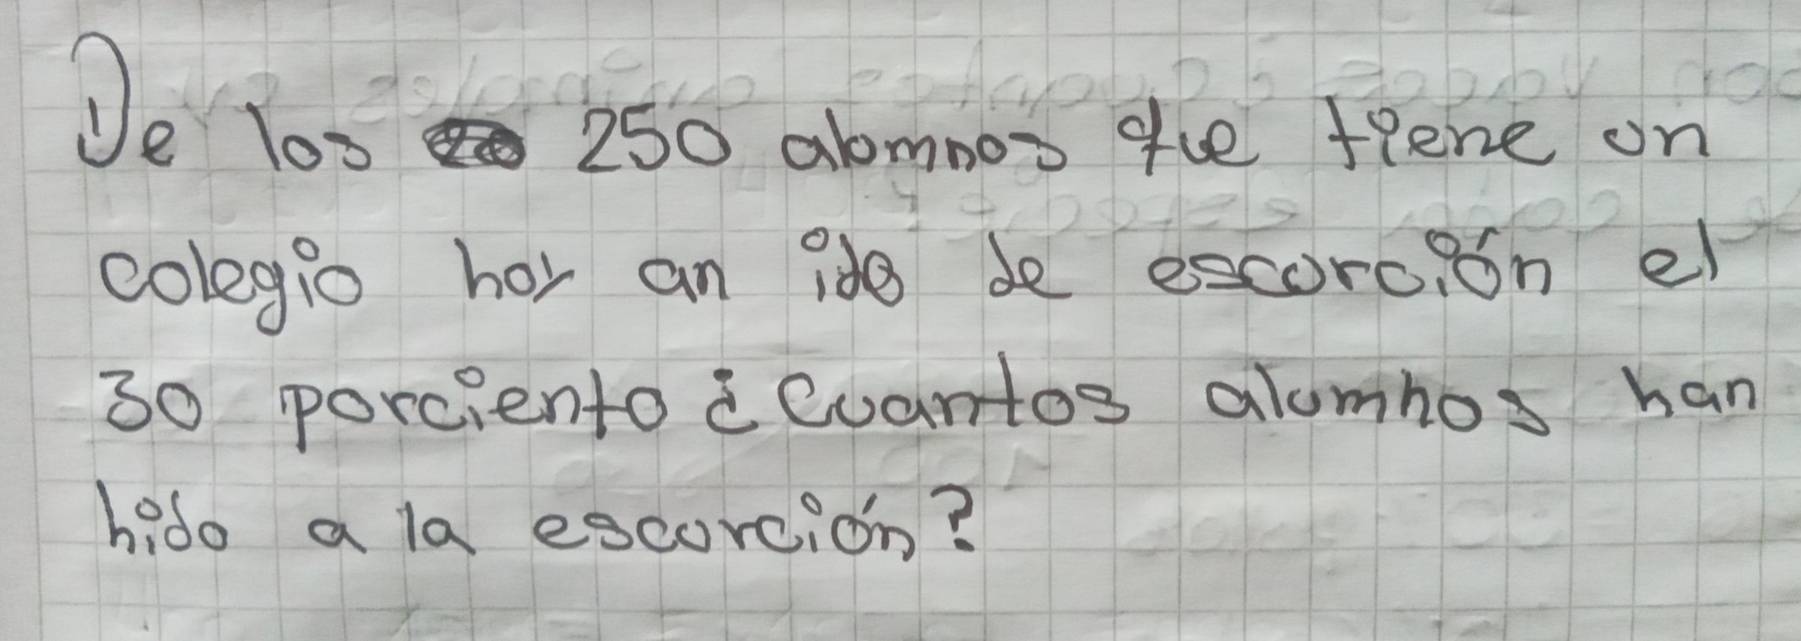 De los 250 alumnos que tiene un
colegio hoy an ido de escurción el
30 porciento ¿Cuantos alumnos han
hido a la escurción?